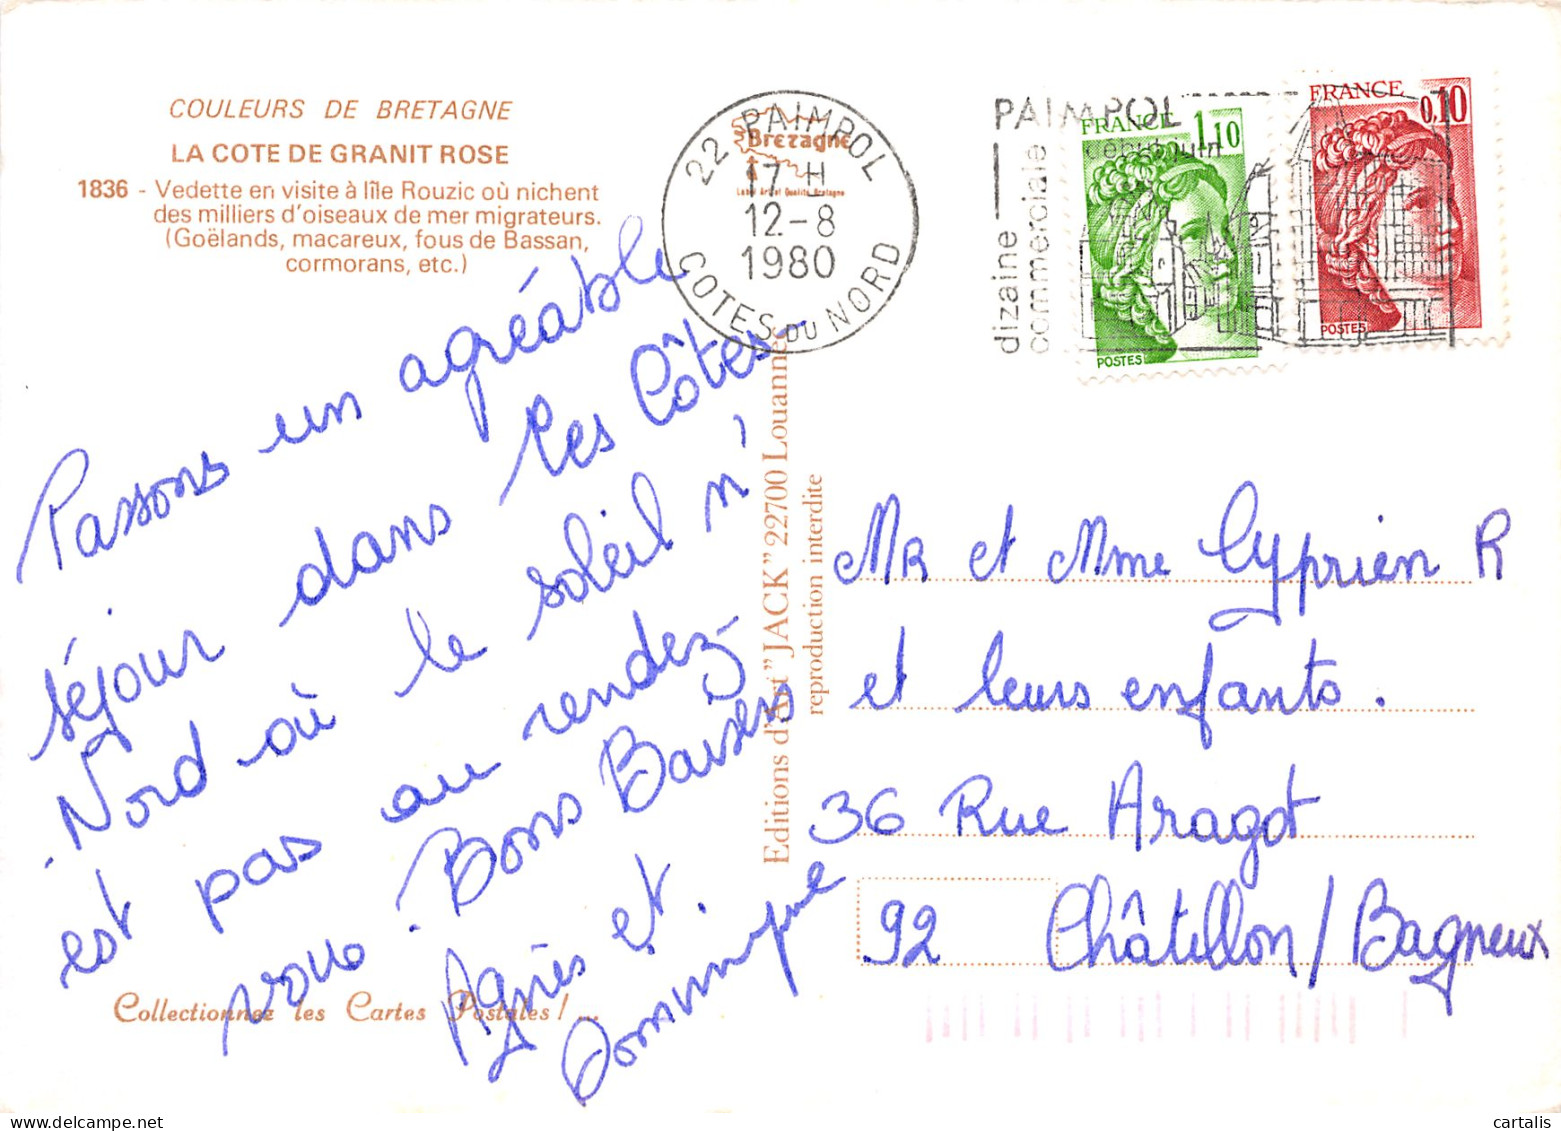 COULEURS DE BRETAGNE
LA COTE DE GRANIT ROSE
1836 - Vedette en visite à l'île Rouzic où nichent
des milliers d'oiseaux de mer migrateurs.
(Goëlands, macareux, fous de Bassan,
cormorans, etc.)
Bretagne
22 PAIMPOL
17 H
12-8
1980
COTES DU NORD
PAIMPOL
début juin
dizaine
commerciale
FRANCE 1,10
POSTES
FRANCE 0,10
POSTES
Passons un agréable
séjour dans les Côtes-
Nord où le soleil n'
est pas au rendez-
vous. Bons Baisers
Agnès et.
Dominique
Collectionnez les Cartes Postales!...
Editions d'Art "JACK" 22700 Louannec
reproduction interdite
MR et Mme Cyprien R
et leurs enfants.
36 Rue Aragot
92 Châtillon/Bagneux
cartalis